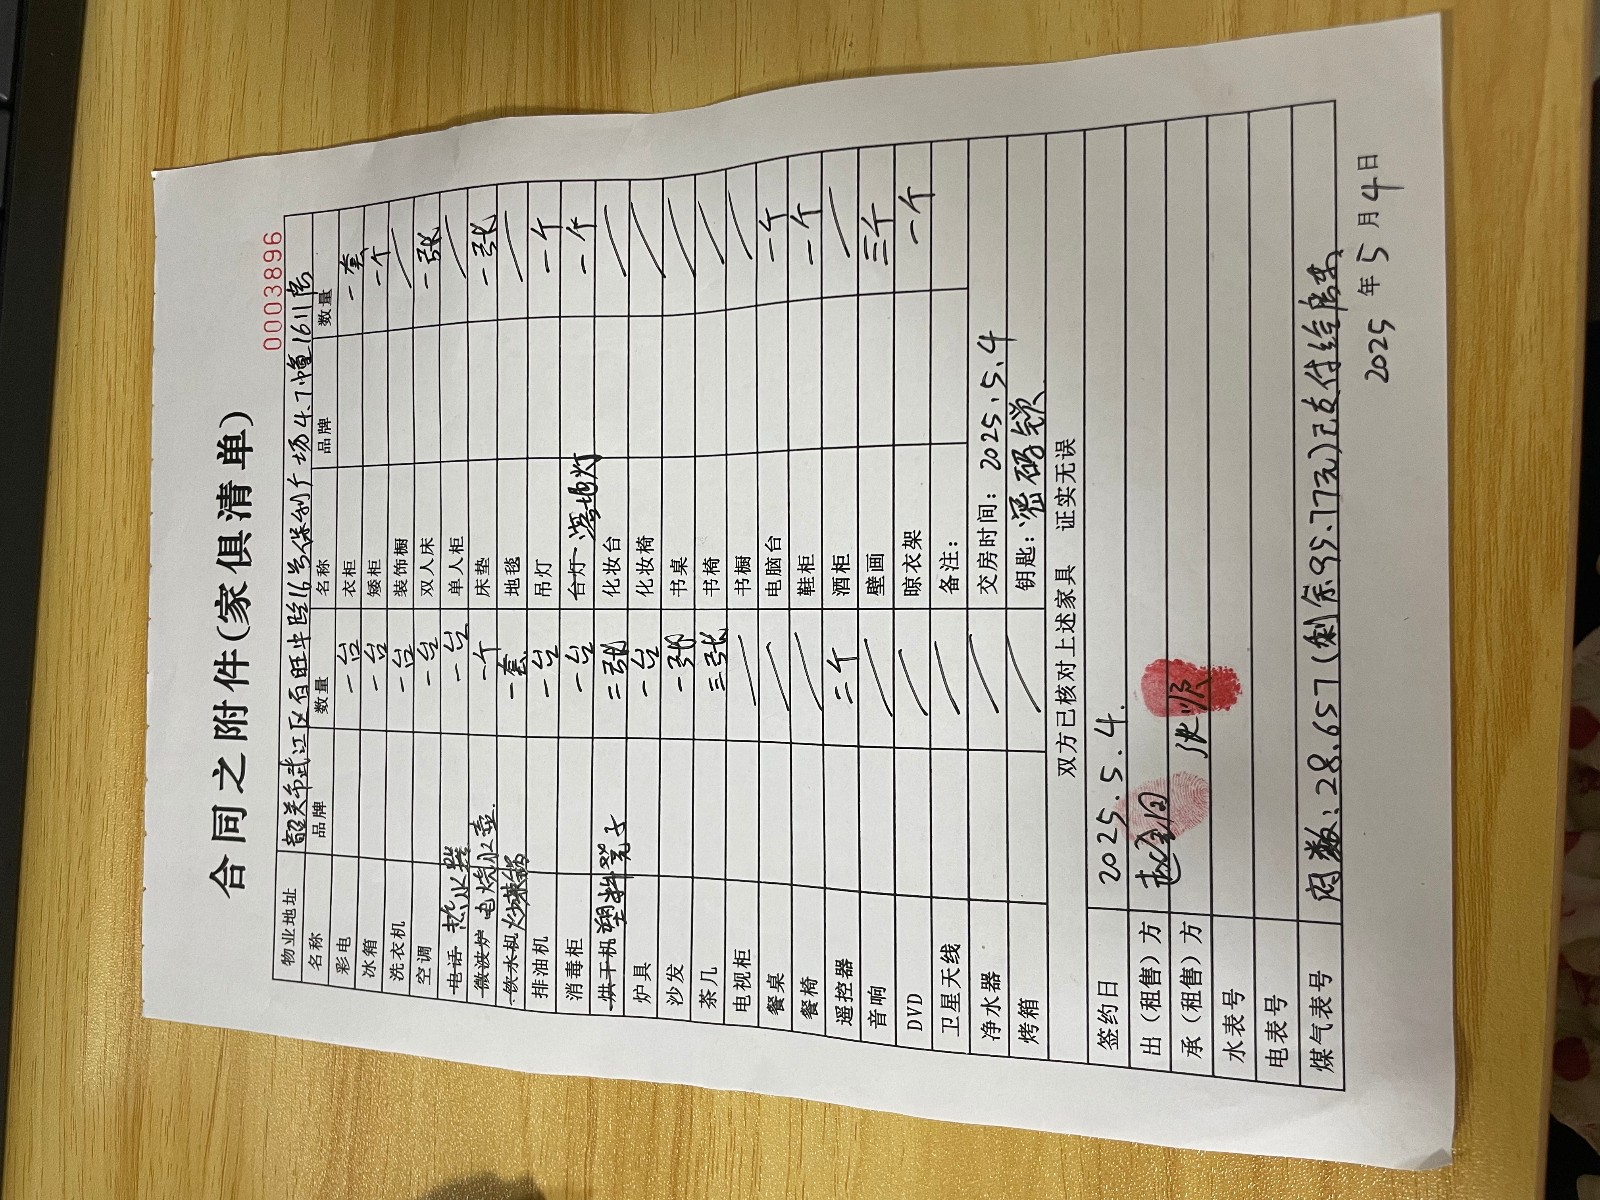 合同之附件(家俱清单)
0003896
物业地址 韶关市武江区百旺中路16号保利广场4.7幢1611房
名称 品牌 数量 名称 品牌 数量
彩电 一台 衣柜 一套
冰箱 一台 矮柜 一个
洗衣机 一台 装饰橱 /
空调 一台 双人床 一张
电话 热水器 一台 单人柜 /
微波炉 电烧水壶 一个 床垫 一张
饮水机 一套 地毯 /
排油机 一台 吊灯 一个
消毒柜 一台 台灯 落地灯 一个
烘干机 塑料凳子 二张 化妆台 /
炉具 一台 化妆椅 /
沙发 一张 书桌 /
茶几 三张 书椅 /
电视柜 / 书橱 /
餐桌 / 电脑台 一个
餐椅 / 鞋柜 一个
遥控器 二个 酒柜 /
音响 / 壁画 三个
DVD / 晾衣架 一个
卫星天线 / 备注:
净水器 / 交房时间: 2025.5.4
烤箱 / 钥匙: 密码锁
双方已核对上述家具 证实无误
签约日 2025.5.4.
出(租售)方
承(租售)方 张顺
水表号
电表号
煤气表号 度数:28.657(剩余95.77元)已支付给房东
2025年5月4日